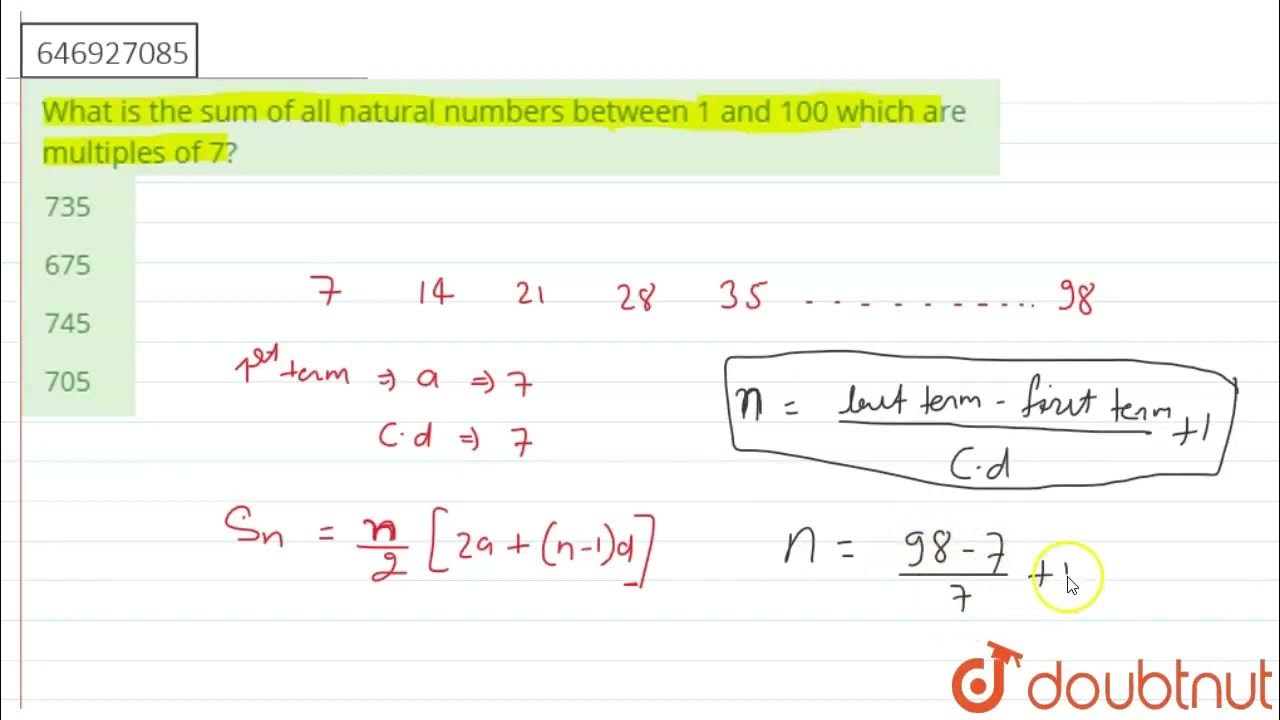 646927085
What is the sum of all natural numbers between 1 and 100 which are
multiples of 7?
735
675
745
705
7 14 21 28 35 ----------- 98
1st term ⇒ a ⇒ 7
C.d ⇒ 7
n = last term - first term +1
C.d
Sn = n/2 [2a+(n-1)d]
n = 98-7 +1
7
doubtnut